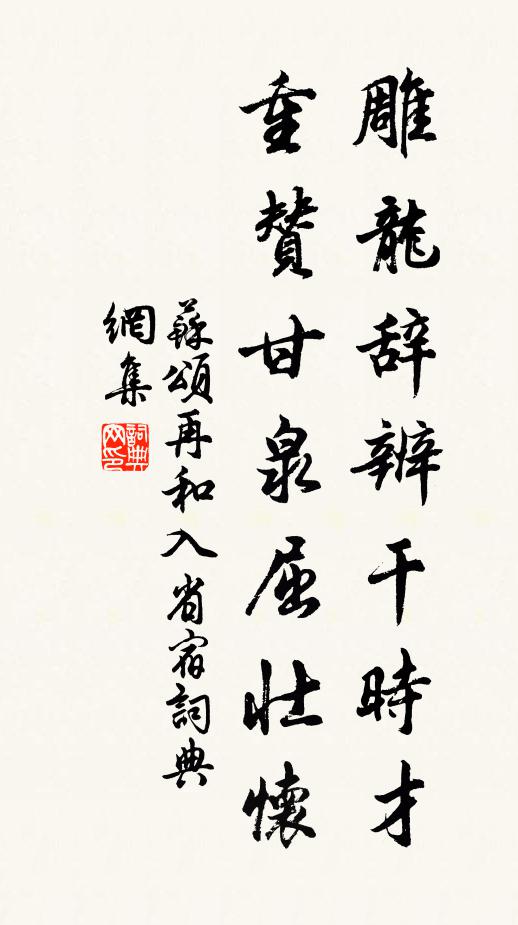 雕龍辞辨干時才
重賛甘泉屈壮懷
蘇頌再和入省宿詞典
網集
詞典网印